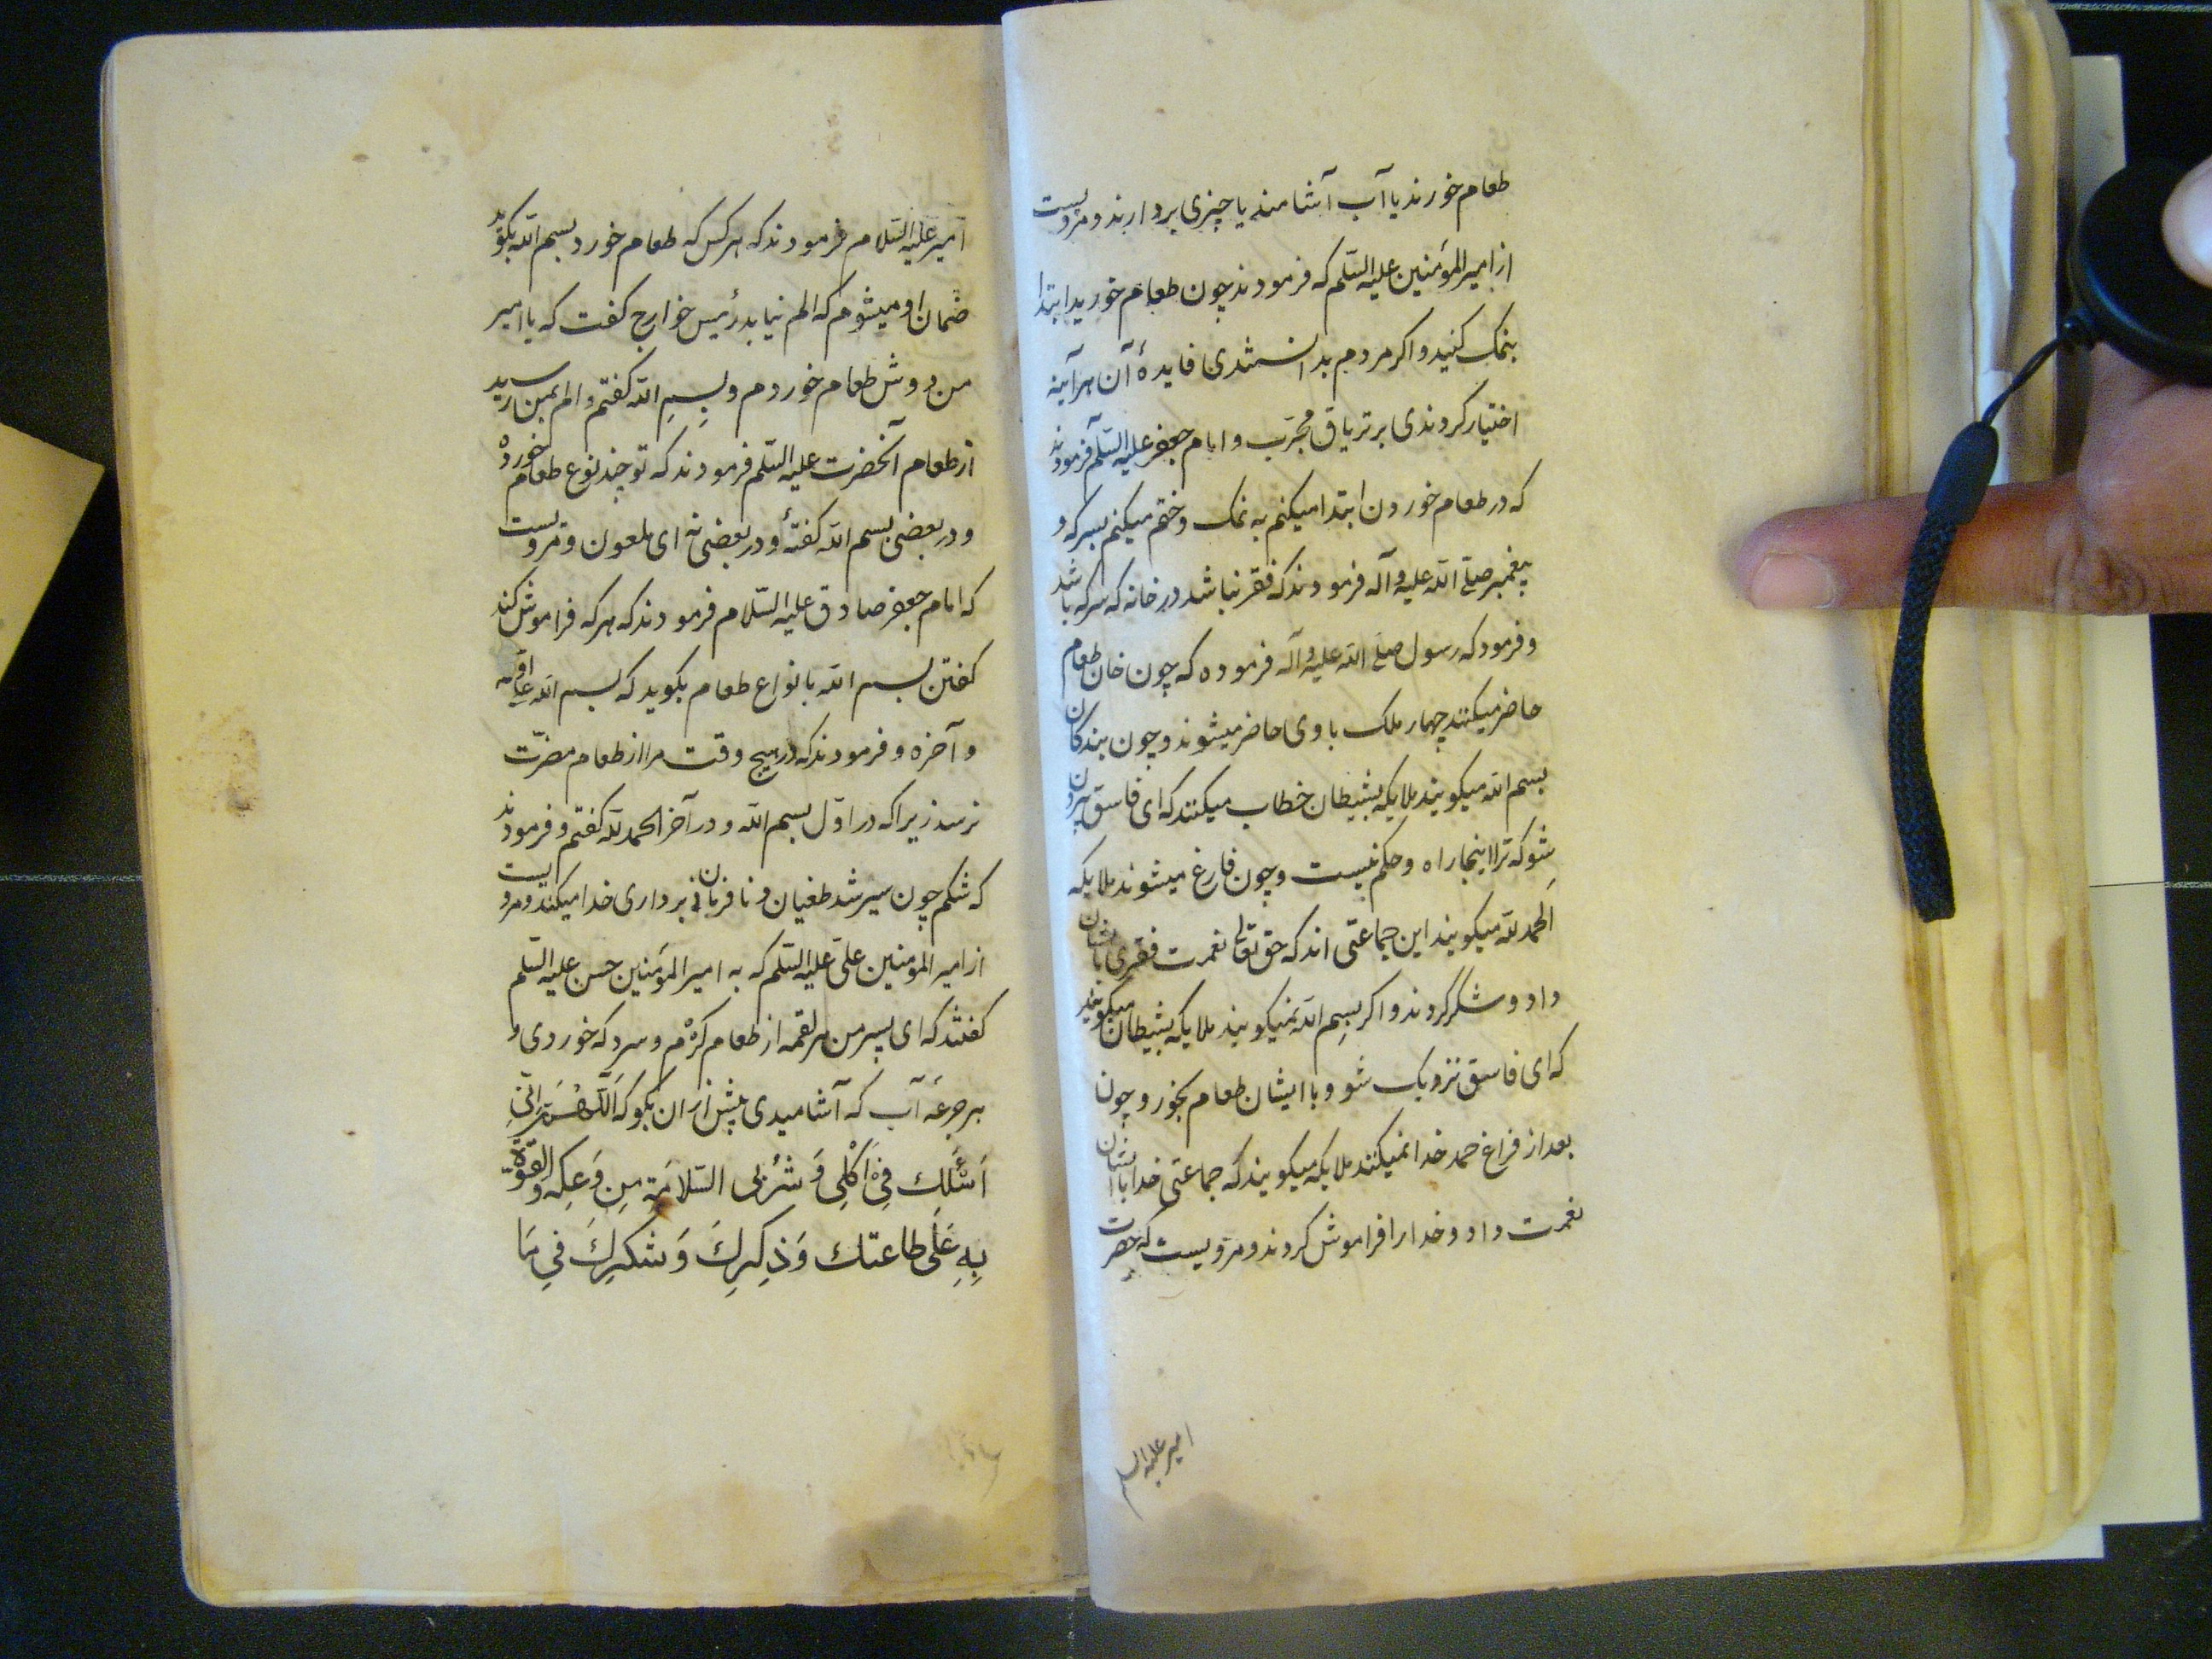 طعام خورند یا آب آشامند یا چیزی بردارند و مرویست
از امیر المؤمنین علیه السلم که فرمودند چون طعام خورید ابتدا
بنمک کنید و اکر مردم بدانستندی فایدهٔ آن هرآینه
اختیار کردندی بر تریاق مجرّب و امام جعفر علیه السلم فرمودند
که در طعام خوردن ابتدا میکنم به نمک و ختم میکنم بسرکه و
پیغمبر صلی الله علیه و آله فرمودند که فقر نباشد در خانه که سرکه باشد
و فرمود که رسول صلی الله علیه و آله فرموده که چون خان طعام
حاضر میکنند چهار ملک با وی حاضر میشوند و چون بندکان
بسم الله میکویند ملایکه بشیطان خطاب میکنند که ای فاسق بیرون
شو که ترا اینجا راه و حکم نیست و چون فارغ میشوند ملایکه
الحمد لله میکویند این جماعتی اند که حق تعالی نعمت فقری باایشان
داد و شکر کردند و اکر بسم الله نمیکویند ملایکه بشیطان میکویند
که ای فاسق نزدیک شو و با ایشان طعام بخور و چون
بعد از فراغ حمد خدا نمیکنند ملایکه میکویند که جماعتی خدا باایشان
نعمت داد و خدا را فراموش کردند و مرویست که حضرت
امیر علیه السلم
امیر علیه السّلام فرمودند که هر کس که طعام خورد بسم الله بکوید
ضمان او میشوم که الم نیابد رئیس خوارج کفت که یا امیر
من دوش طعام خوردم و بسم الله کفتم و الم بمن رسید
از طعام آنحضرت علیه السلم فرمودند که تو چند نوع طعام خوردهٔ
و در بعضی بسم الله کفتهٔ و در بعضی نه ای ملعون و مرویست
که امام جعفر صادق علیه السّلام فرمودند که هر که فراموش کند
کفتن بسم الله بانواع طعام بکوید که بسم الله علی اوله
و آخره و فرمودند که در هیچ وقت مرا از طعام مضرّت
نرسد زیرا که در اوّل بسم الله و در آخر الحمد لله کفتم و فرمودند
که شکم چون سیر شد طغیان و نافرمان برداری خدا میکند و مرویست
از امیر المؤمنین علی علیه السلم که به امیر المؤمنین حسن علیه السلم
کفتند که ای پسر من هر لقمه از طعام کرم و سرد که خوردی و
هر جرعه آب که آشامیدی پیش از ان بکو که اَللّٰهُمَّ اِنّی
اَسْئَلُكَ فِیْ اَكْلِی وَ شُرْبی السّلامَة مِن وَعِكه وَ القوّة
بِهِ عَلَی طاعتك وَ ذِكِركَ وَ شكرِكَ فی مَا